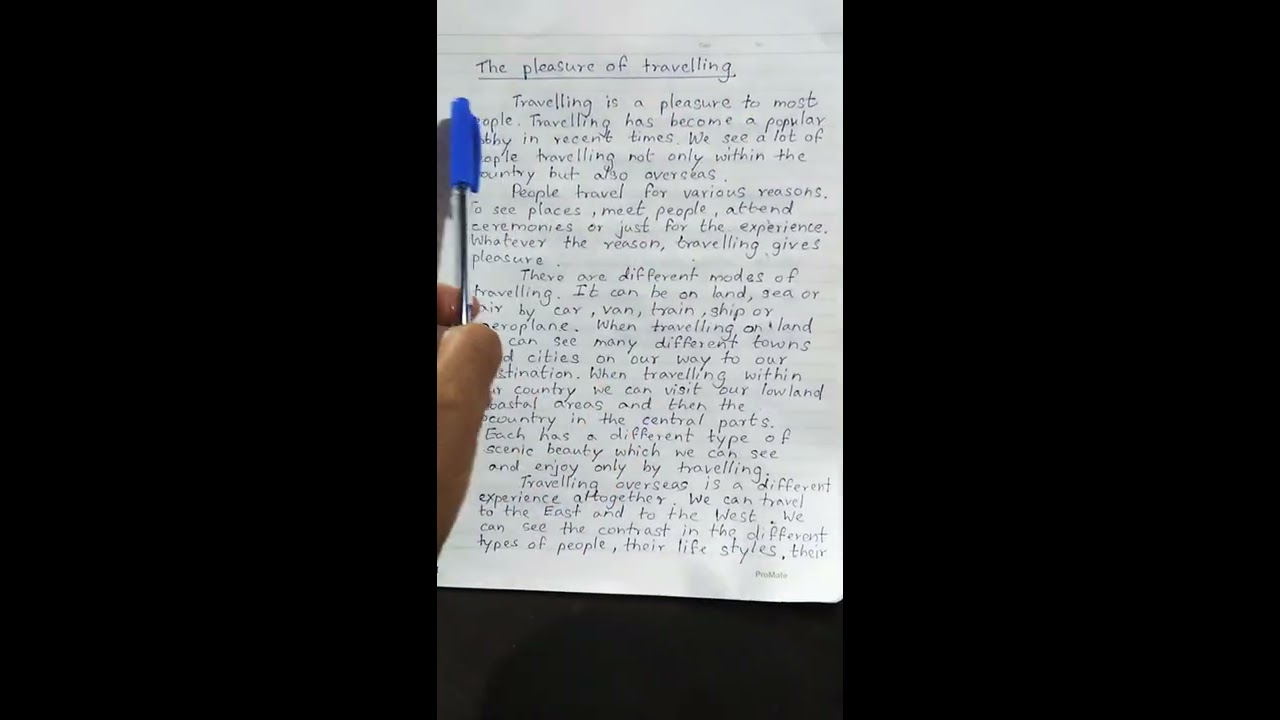 The pleasure of travelling.
Travelling is a pleasure to most
ople. Travelling has become a popular
bby in recent times. We see a lot of
eople travelling not only within the
ountry but also overseas.
People travel for various reasons.
To see places, meet people, attend
ceremonies or just for the experience.
Whatever the reason, travelling gives
pleasure.
There are different modes of
travelling. It can be on land, sea or
air by car, van, train, ship or
aeroplane. When travelling on land
can see many different towns
d cities on our way to our
stination. When travelling within
ur country we can visit our lowland
oastal areas and then the
pcountry in the central parts.
Each has a different type of
scenic beauty which we can see
and enjoy only by travelling.
Travelling overseas is a different
experience altogether. We can travel
to the East and to the West. We
can see the contrast in the different
types of people, their life styles, their
ProMate